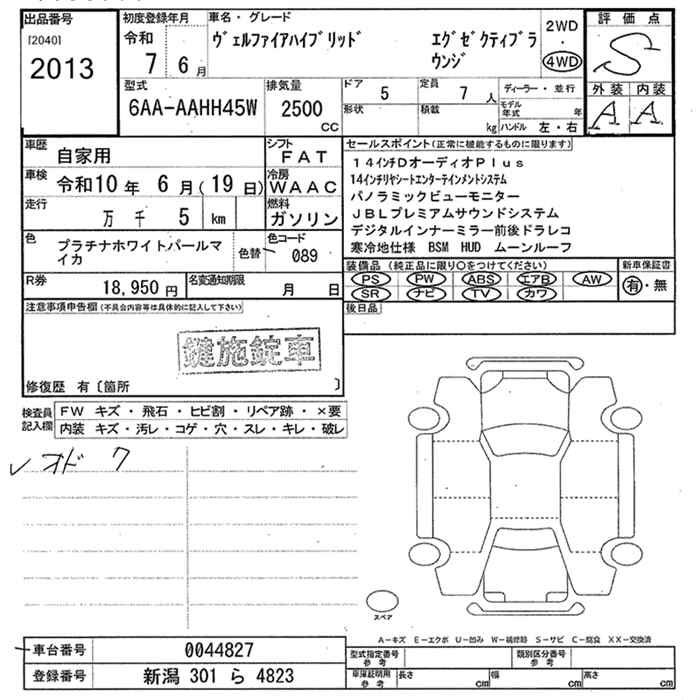 出品番号
[2040]
2013
初度登録年月
令和
7 6月
車名・グレード
ヴェルファイアハイブリッド エグゼクティブラウンジ
2WD
・
4WD
評価点
S
外装 内装
A A
型式
6AA-AAHH45W
排気量
2500
cc
ドア 5
形状
定員 7 人
積載 kg
ディーラー・並行
モデル年式 年
ハンドル 左・右
車歴 自家用
シフト FAT
車検 令和10年 6月(19日)
冷房 WAAC
走行 万 千 5 km
燃料 ガソリン
色 プラチナホワイトパールマイカ
色替
色コード 089
R券 18,950円
名変通知期限 月 日
セールスポイント(正常に機能するものに限ります)
14インチDオーディオPlus
14インチリヤシートエンターテインメントシステム
パノラミックビューモニター
JBLプレミアムサウンドシステム
デジタルインナーミラー前後ドラレコ
寒冷地仕様 BSM HUD ムーンルーフ
装備品(純正品に限り○をつけてください)
PS PW ABS エアB AW
SR ナビ TV カワ
新車保証書
有・無
後日品
注意事項申告欄(不具合内容等は具体的に記入して下さい)
鍵施錠車
修復歴 有〔箇所 〕
検査員記入欄
FW キズ・飛石・ヒビ割・リペア跡・×要
内装 キズ・汚レ・コゲ・穴・スレ・キレ・破レ
レオドク
スペア
A-キズ E-エクボ U-凹み W-補修跡 S-サビ C-腐食 XX-交換済
車台番号 0044827
登録番号 新潟 301 ら 4823
型式指定番号 参考
類別区分番号 参考
車庫証明用 参考
長さ cm 幅 cm 高さ cm